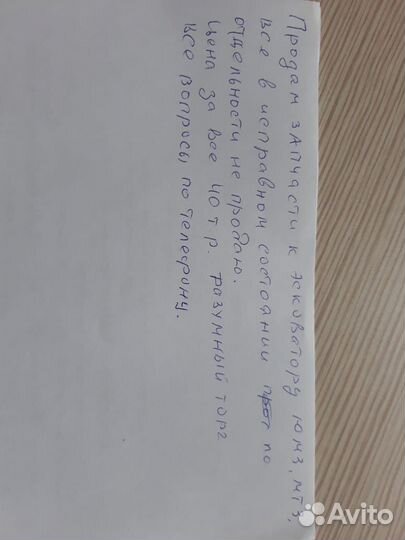 Продам запчасти к эсковатору юмз, мтз,
все в исправном состоянии по
отдельности не продаю.
Цена за все 40 т р. разумный торг
Все вопросы по телефону.
Avito